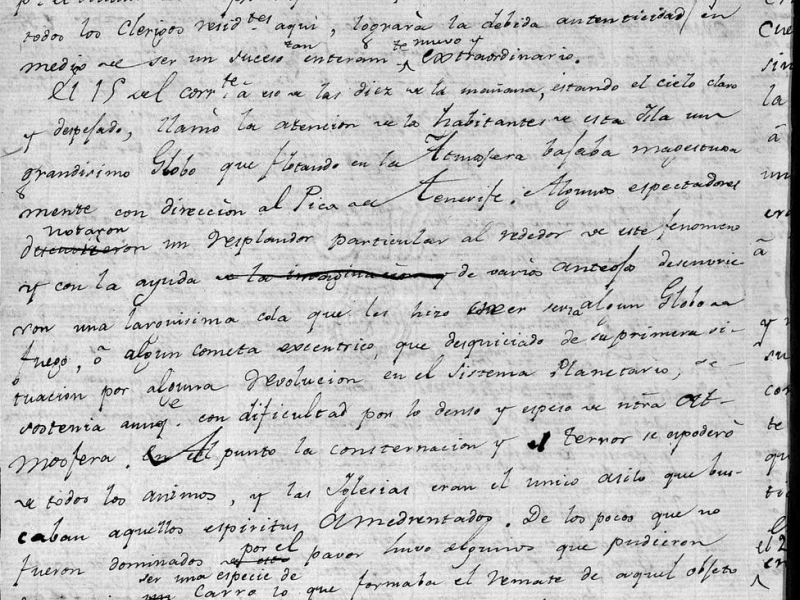 todos los Clerigos resid.tes aqui, lograrà la debida autenticidad en
medio de ser un suceso tan enteram.te nuevo y extraordinario.
El 15 del corr.te à eso de las diez de la mañana, estando el cielo claro
y despejado, llamò la atencion de los habitantes de esta Isla un
grandisimo Globo que flotando en la Atmosfera bajaba magestuosa
mente con direcciòn al Pico de Tenerife. Algunos espectadores
notaron un resplandor particular al rededor de este fenomeno
y con la ayuda de la imaginacion y de varios anteojos descuvrie
ron una larguisima cola que les hizo creer seria algun Globo de
fuego, ò algun cometa excentrico, que desquiciado de su primera si-
tuacion por alguna revolucion en el Sistema Planetario, se
sostenia aunq.e con dificultad por lo denso y espeso de ntra At-
mosfera. En el punto la consternacion y el terror se apoderò
de todos los animos, y las Iglesias eran el unico asilo que bus-
caban aquellos espiritus amedrentados. De los pocos que no
fueron dominados por el pavor huvo algunos que pudieron
ser una especie de
Carro lo que formaba el remate de aquel objeto